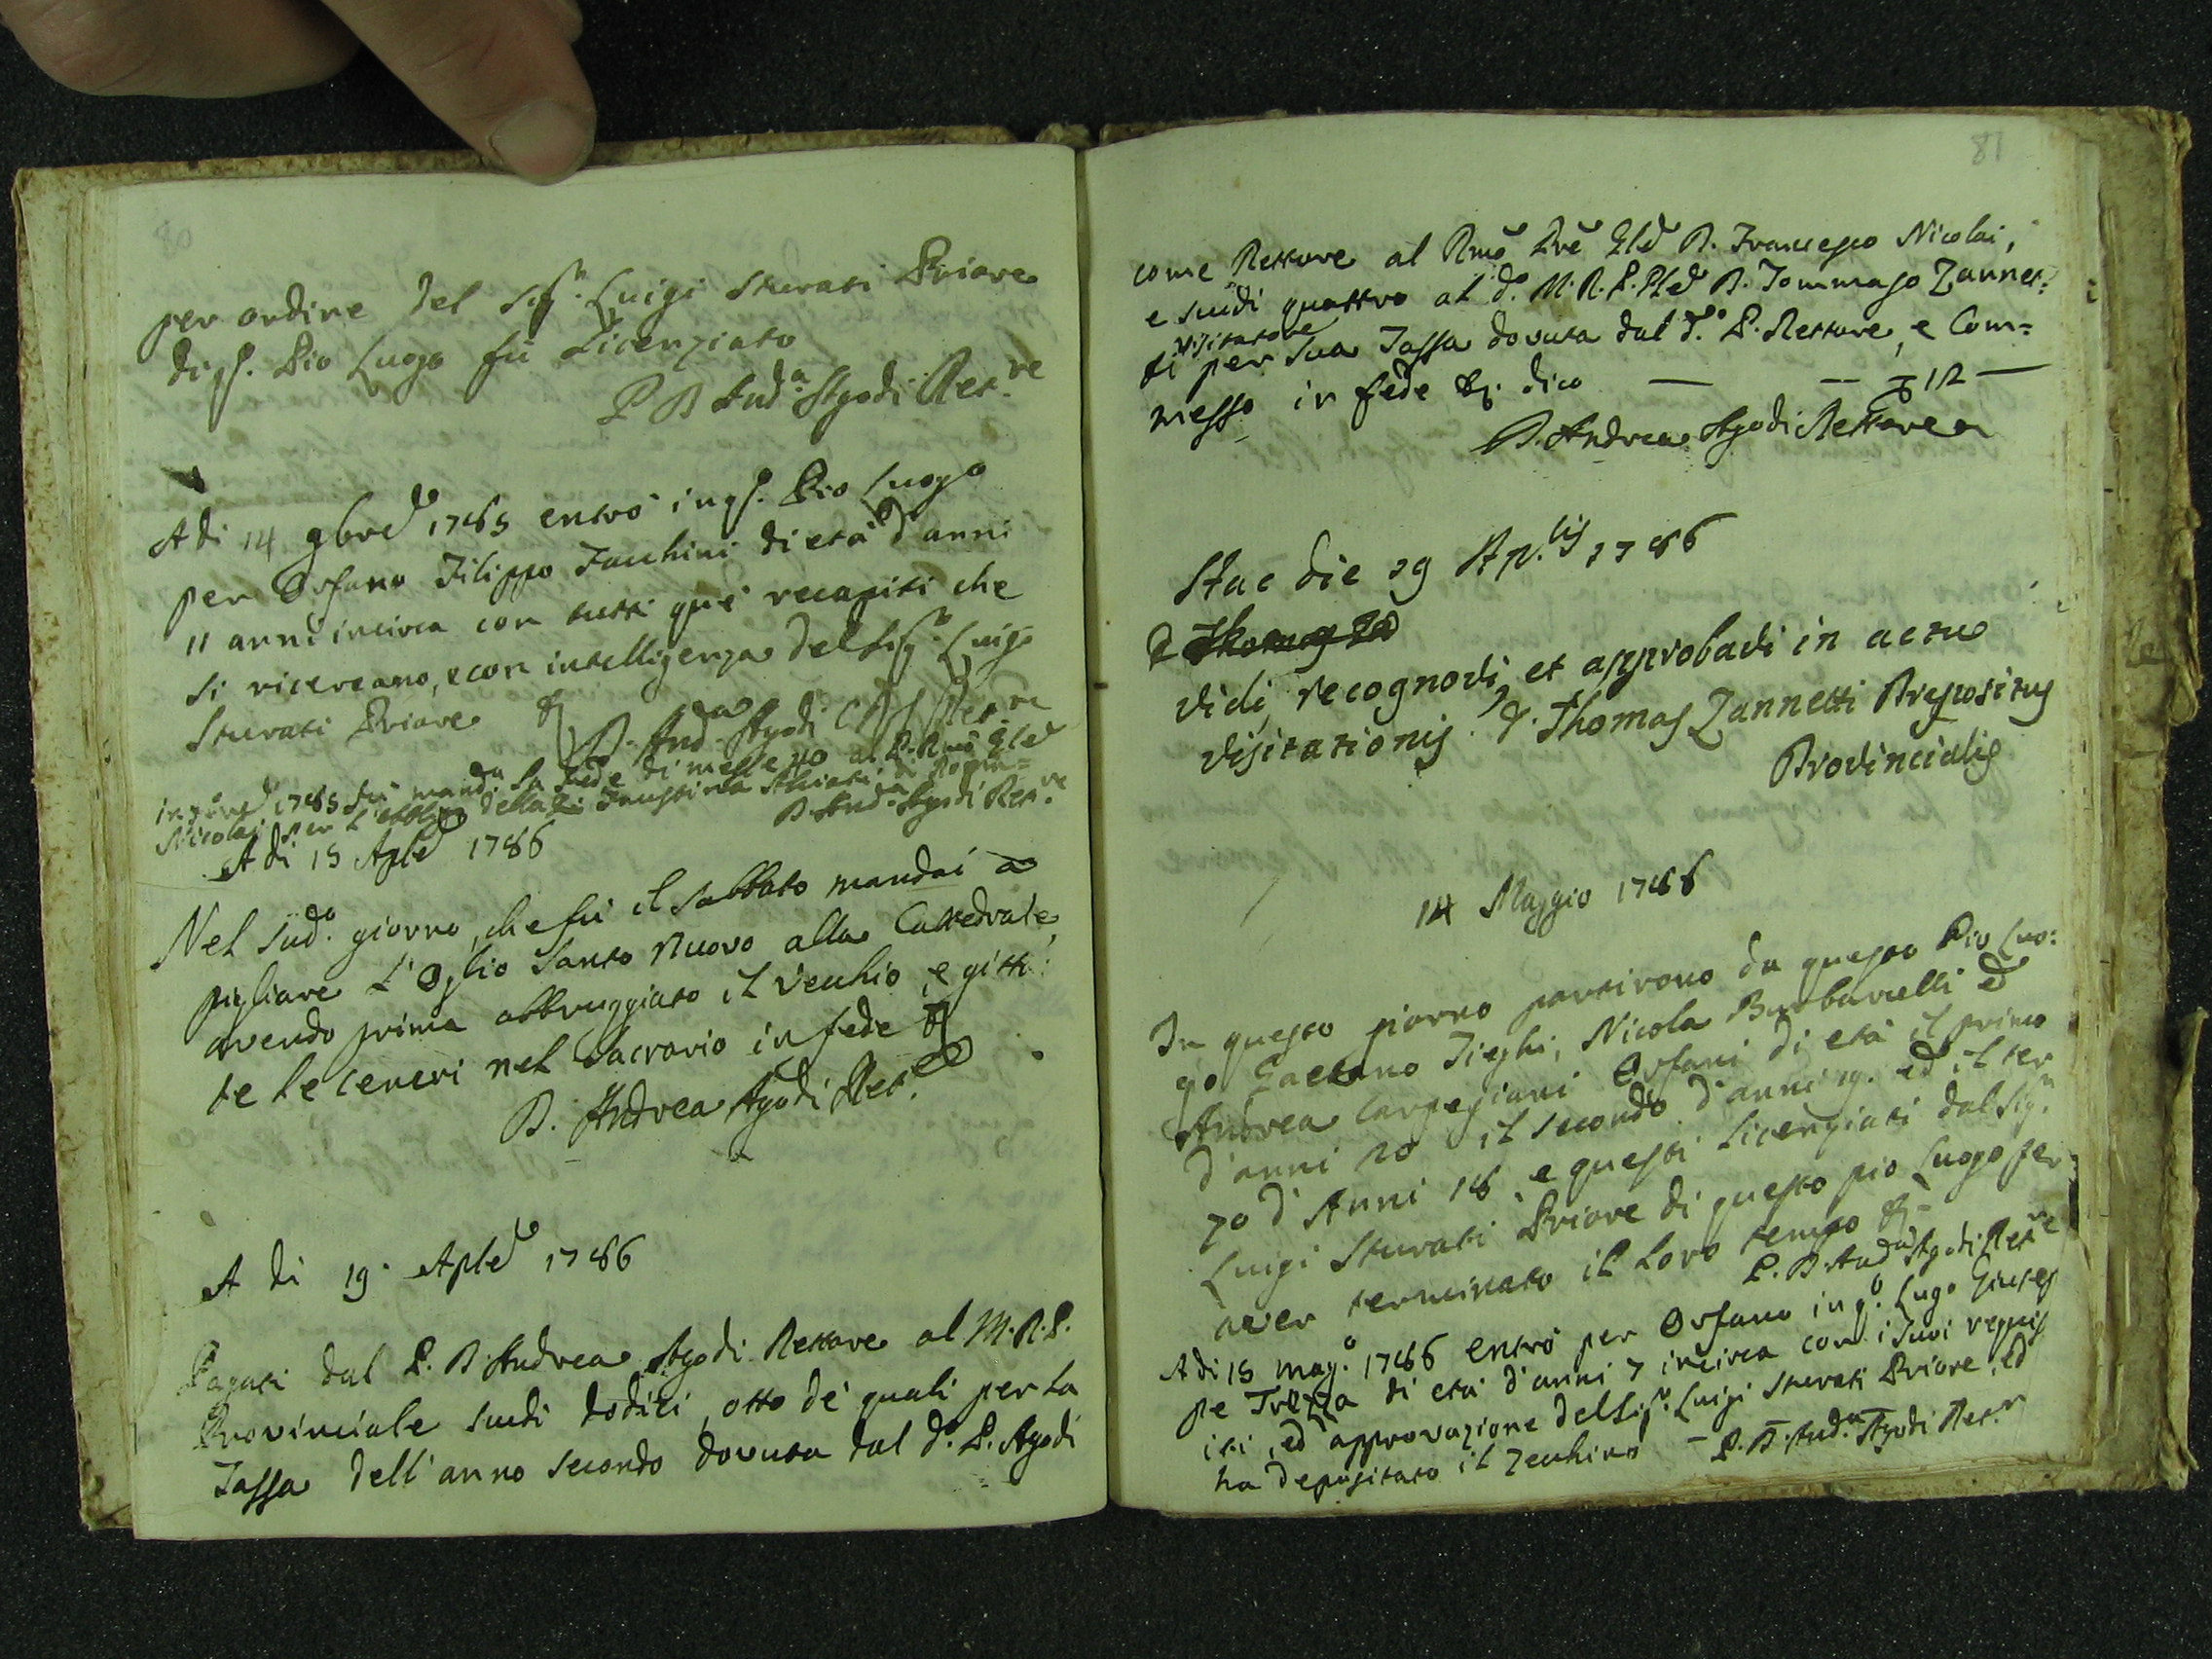 80
per ordine del Sigr. Luigi Sturati Priore
di qs. Pio Luogo fù Licenziato
P. D. Anda. Agodi Retre
A di 14 9bre 1785 entrò in qs. Pio Luogo
per Orfano Filippo Facchini di età d'anni
11 anni incirca con tutti que recapiti che
si ricercano, e con intelligenza del Sigr. Luigi
Sturati Priore &
D. Anda. Agodi CRS Retre
1785 fù manda. la fede di messe 40 al P. Rmo Gle
Nicolai per
D. Anda. Agodi Retre
A di 15 Aple 1786
Nel sudo. giorno, che fù il Sabbato mandai a
pigliare l'Oglio Santo Nuovo alla Cattedrale,
avendo prima abbruggiato il vecchio, e gitta:
te le ceneri nel Sacrario in fede &
D. Andrea Agodi Retre
A di 19. Aple 1786
Pagati dal P. D. Andrea Agodi Rettore al M. R. P.
Provinciale scudi dodici, otto de' quali per la
Tassa dell'anno secondo dovuta dal d. P. Agodi
81
come Rettore al Rmo Pre Gle D. Francesco Nicolai,
e scudi quattro al do. M. R. P. Ple D. Tommaso Zannet:
visitatore
ti per sua Tassa dovuta dal do. P. Rettore, e Com=
messo in fede &. dico — — 12 —
D. Andrea Agodi Rettore
Hac die 29 Ap.lis 1786
vidi, recognovi, et approbavi in actu
visitationis. D. Thomas Zannetti Prepositus
Provincialis
14 Maggio 1786
In questo giorno partirono da questo Pio Luo:
go Gaetano Tieghi, Nicola Barbarelli ed
Andrea Carpegiani Orfani di età il primo
d'anni 20 il secondo d'anni 19. ed il ter
zo d'Anni 18 e questi Licenziati dal Sigr.
Luigi Sturati Priore di questo pio Luogo per
aver terminato il loro tempo &.
P. D. Anda. Agodi Retre
A di 15 mago. 1786 entrò per Orfano in qo. Lugo Giusep
pe Trezza di età d'anni 7 incirca con i suoi requis
iti, ed approvazione del Sigr. Luigi Sturati Priore, ed
ha depositato il Zecchino — P. D. Anda. Agodi Retr